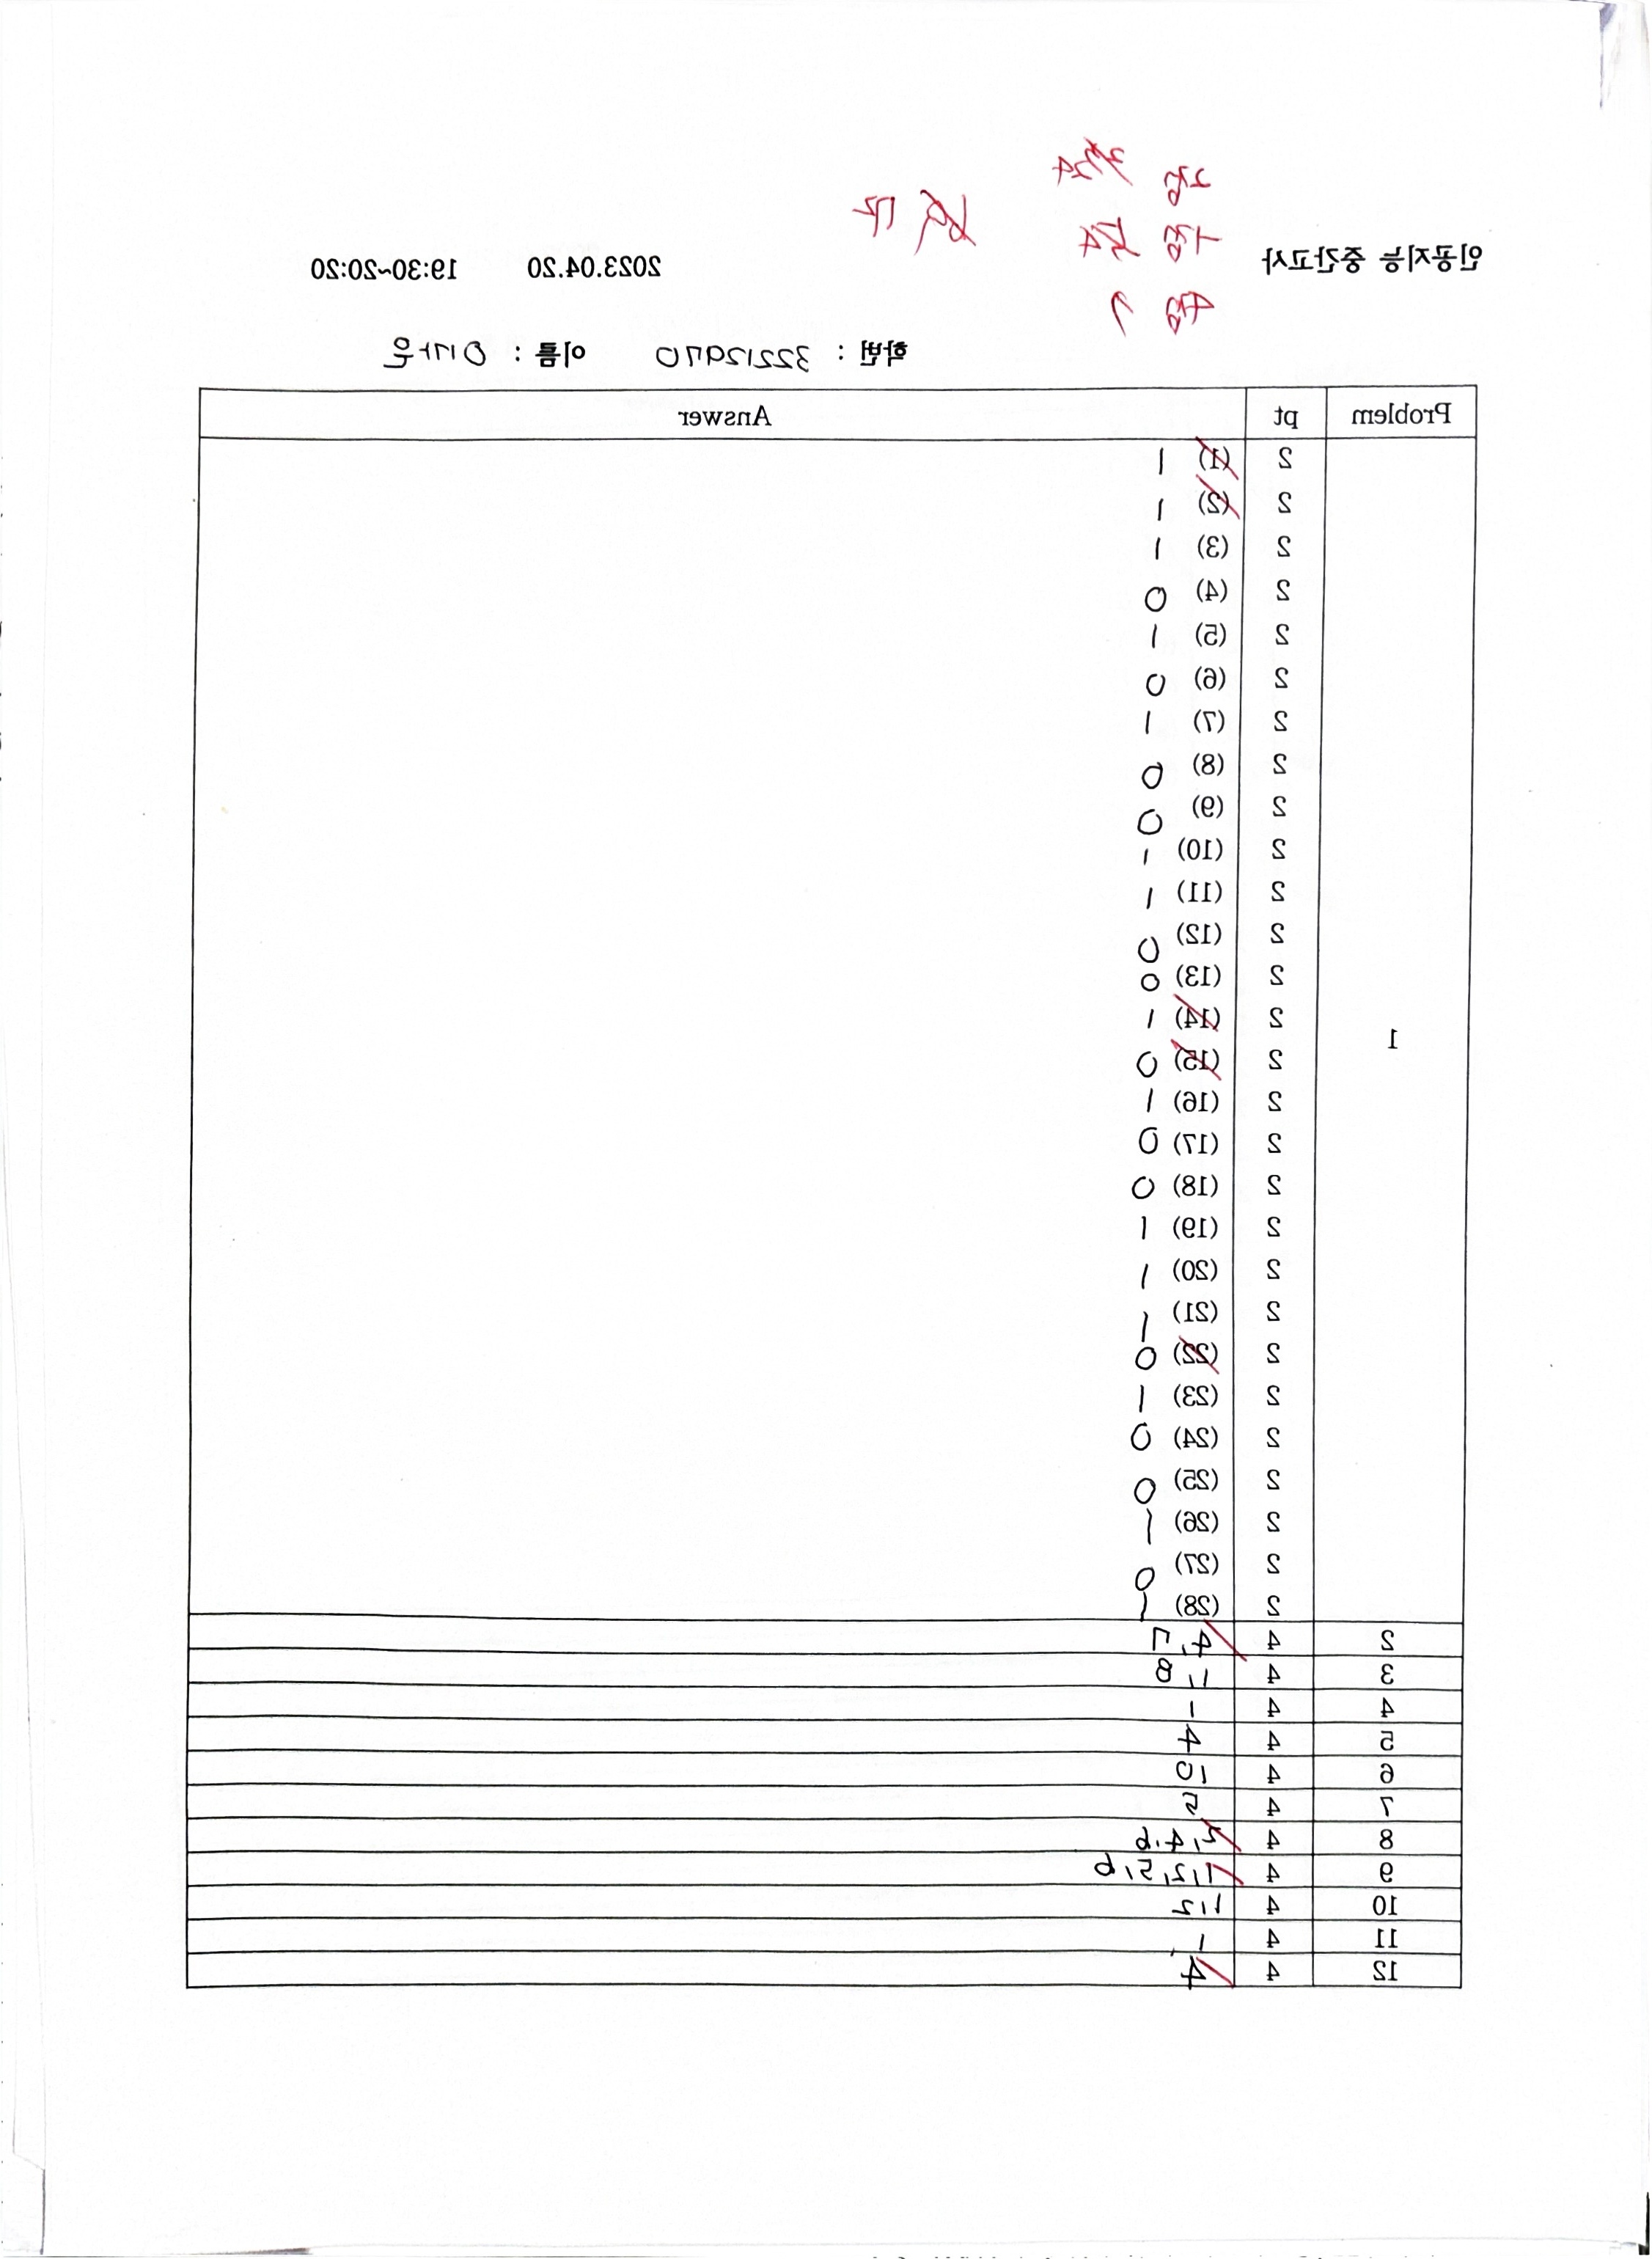 인공지능 중간고사 2023.04.20 19:30~20:20
학번 : 32217970 이름 : 이가은
Problem pt Answer
1
2 (1) 1
2 (2) 1
2 (3) 1
2 (4) 0
2 (5) 1
2 (6) 0
2 (7) 1
2 (8) 0
2 (9) 0
2 (10) 1
2 (11) 1
2 (12) 0
2 (13) 0
2 (14) 1
2 (15) 0
2 (16) 1
2 (17) 0
2 (18) 0
2 (19) 1
2 (20) 1
2 (21) 1
2 (22) 0
2 (23) 1
2 (24) 0
2 (25) 0
2 (26) 1
2 (27) 0
2 (28) 1
2 4 4, 7
3 4 1, 8
4 4 1
5 4 4
6 4 10
7 4 5
8 4 2, 4, 6
9 4 1, 2, 5, 6
10 4 1, 2
11 4 1
12 4 4